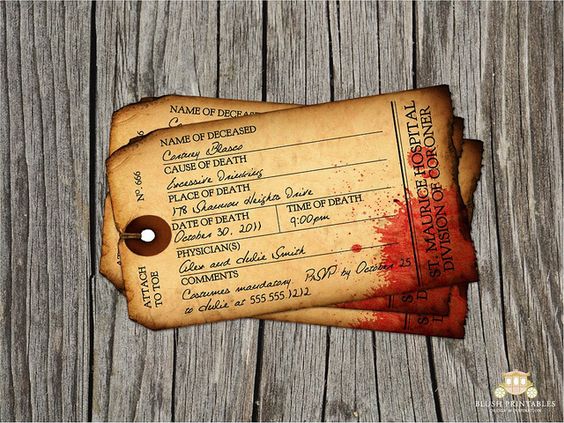 NAME OF DECEASED
NAME OF DECEASED
Cortney Blasco
CAUSE OF DEATH
Excessive Drinking
PLACE OF DEATH
178 Shannon Heights Drive
DATE OF DEATH
TIME OF DEATH
October 30, 2011
9:00pm
PHYSICIAN(S)
Alex and Julie Smith
COMMENTS
Costumes mandatory. RSVP by October 25
to Julie at 555.555.1212
Nº. 666
ATTACH
TO TOE
ST. MAURICE HOSPITAL
DIVISION OF CORONER
BLUSH PRINTABLES